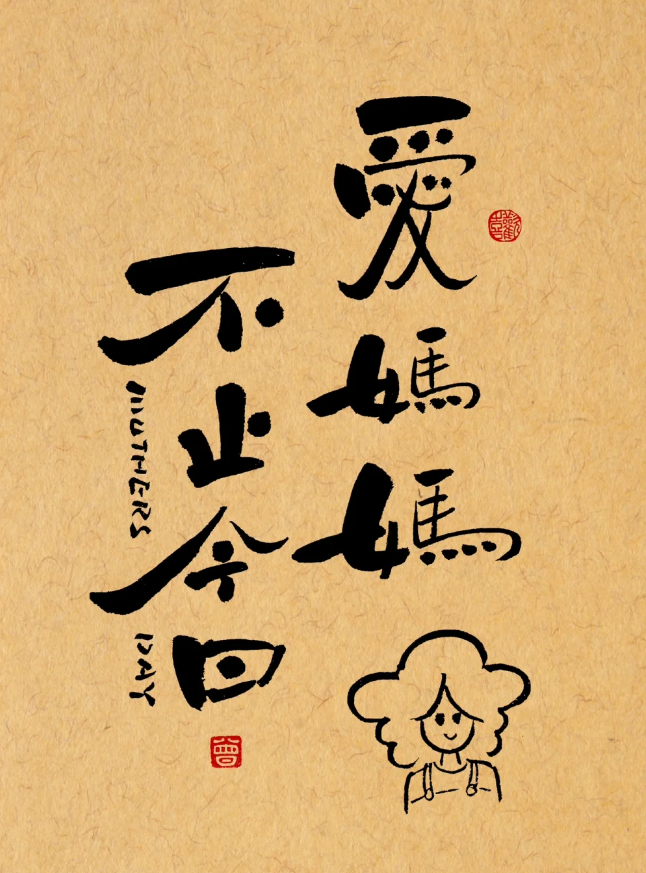 愛媽媽
不止今日
MUTHERS
DAY
曾